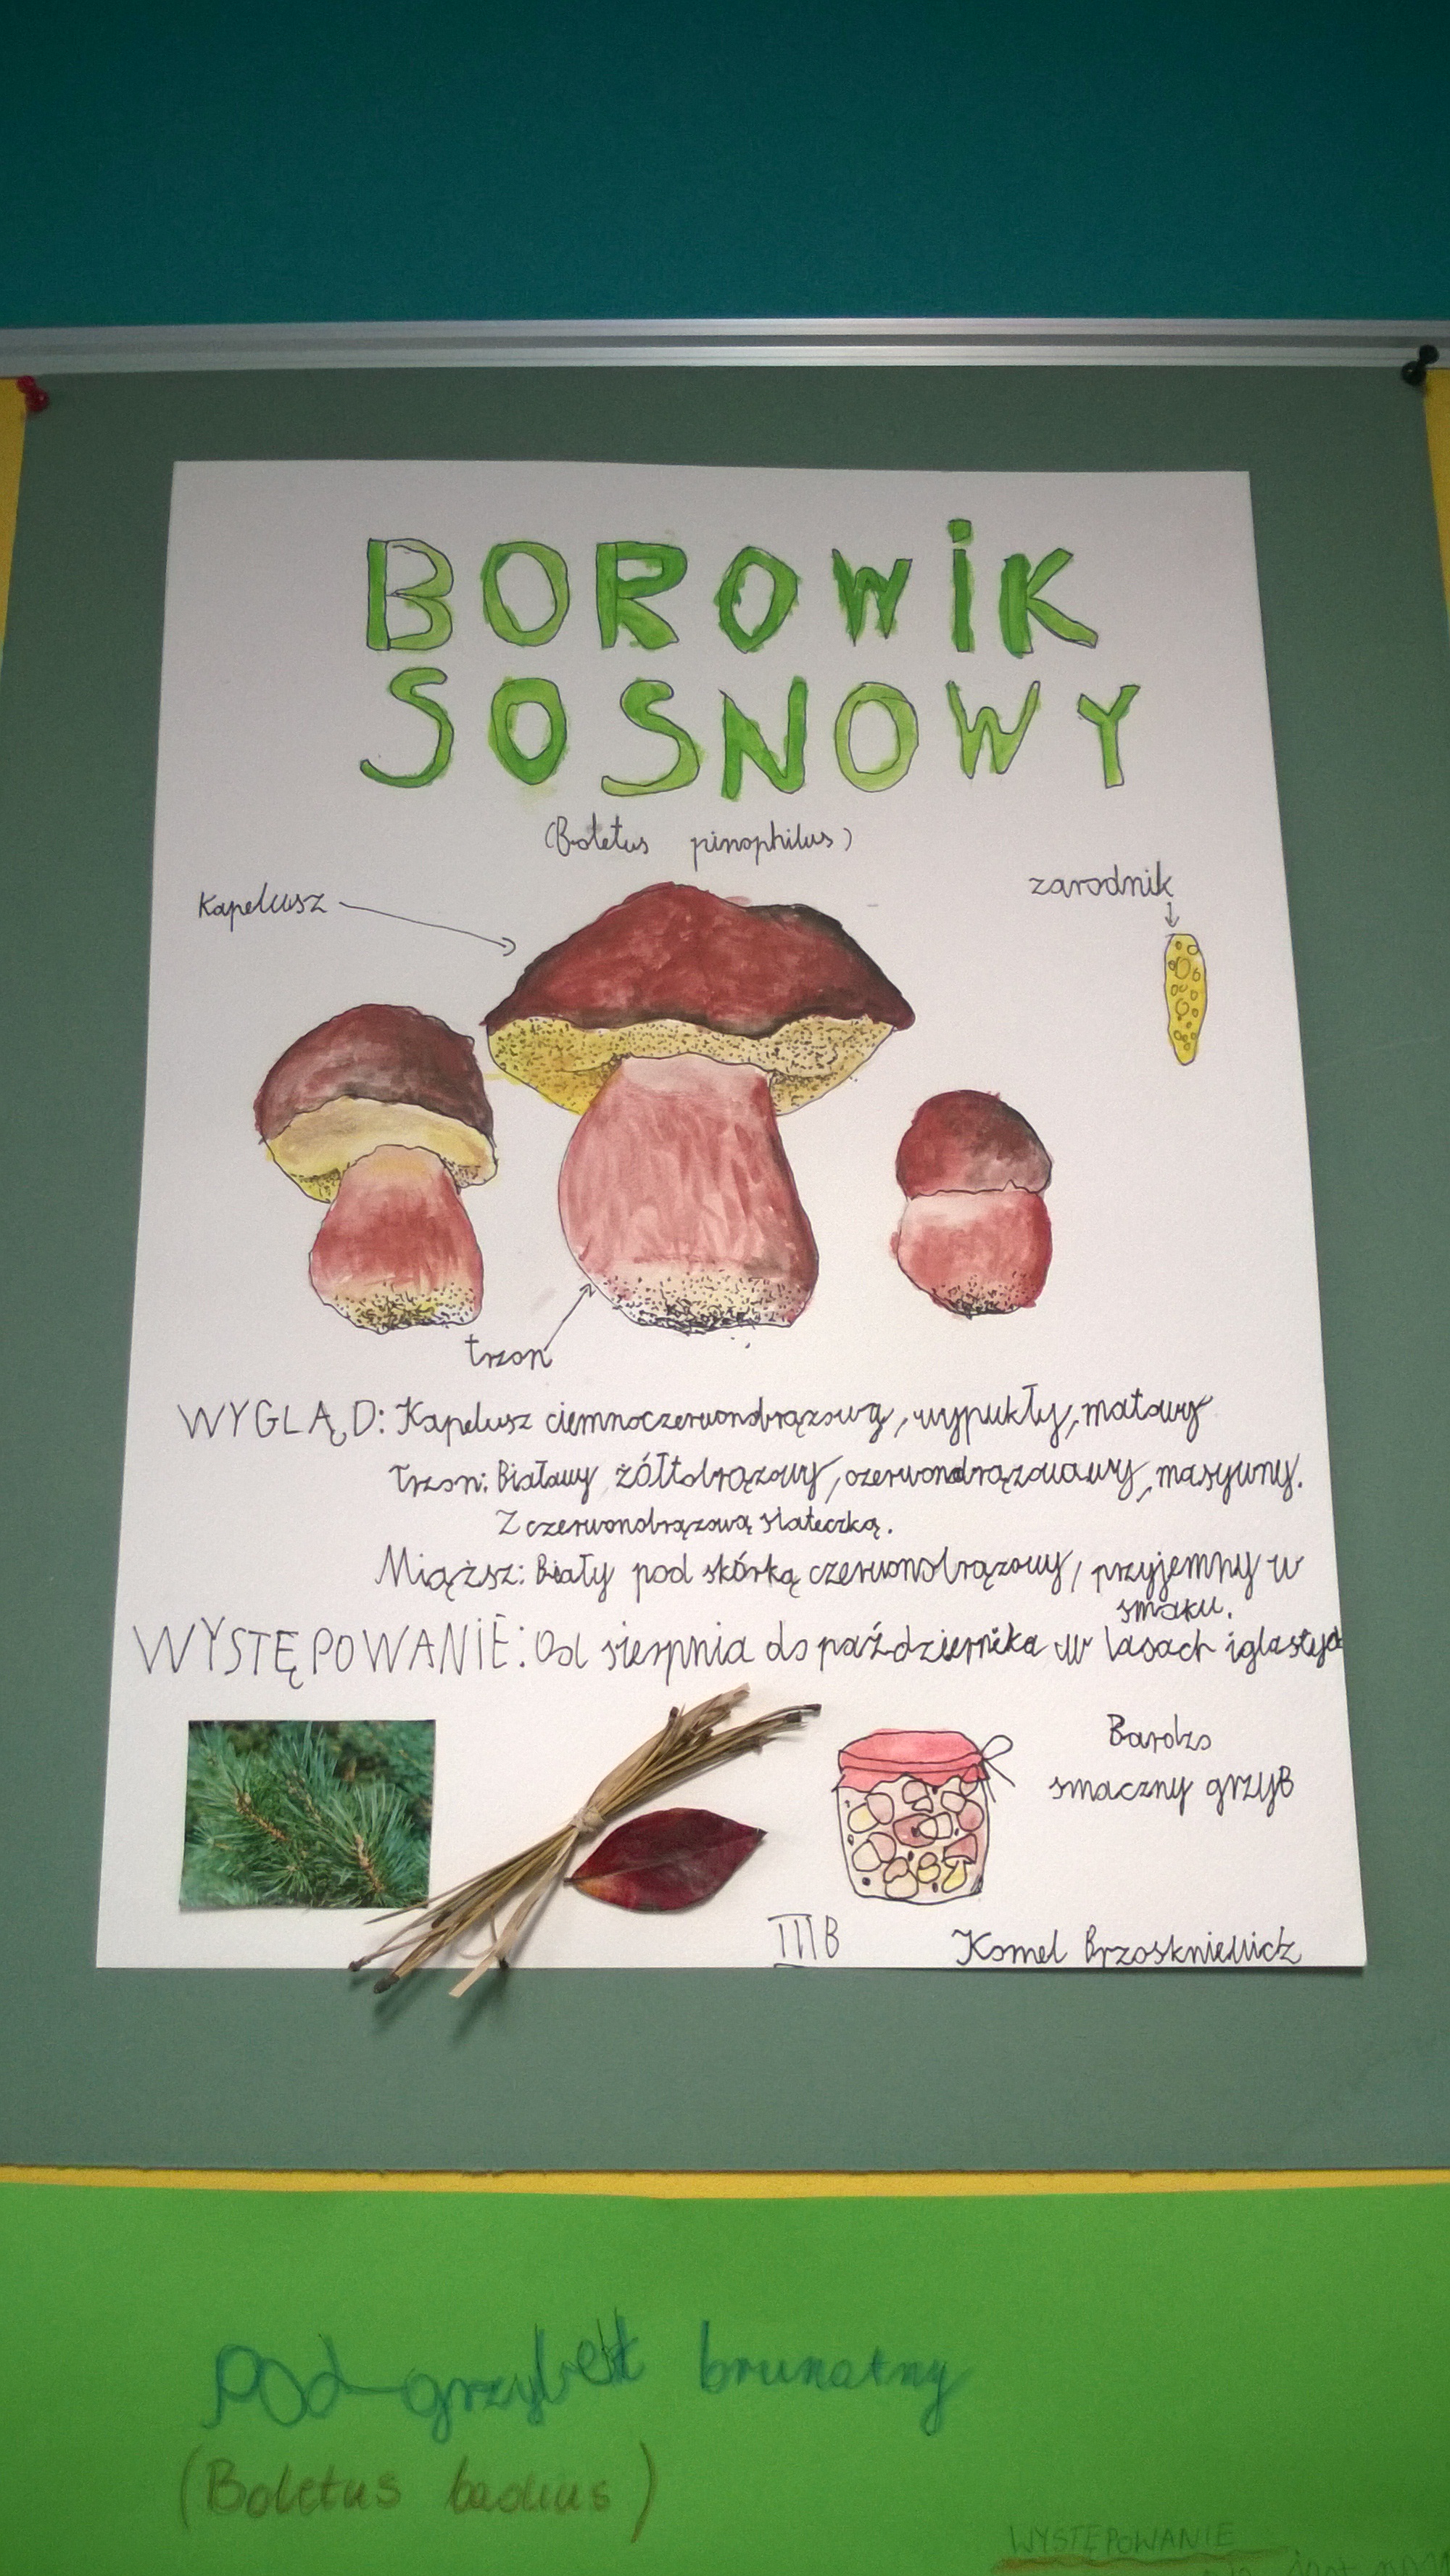 BOROWiK
SOSNOWY
(Boletus pinophilus)
Kapelusz
zarodnik
trzon
WYGLĄD: Kapelusz ciemnoczerwonobrązowy, wypukły, matowy
Trzon: Białawy, żółtobrązowy, czerwonobrązowawy, masywny.
Z czerwonobrązową siateczką.
Miąższ: Biały pod skórką czerwonobrązowy, przyjemny w
smaku.
WYSTĘPOWANIE: Od sierpnia do października w lasach iglastych
Bardzo
smaczny grzyB
III B
Kornel
Podgrzybek brunatny
(Boletus badius)
WYSTĘPOWANIE